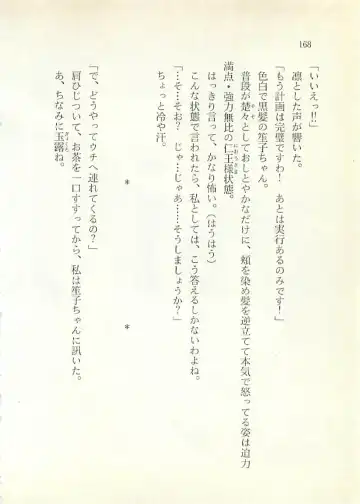 168
「いいえっ!!」
凛とした声が響いた。
「もう計画は完璧ですわ! あとは実行あるのみです!」
色白で黒髪の笙子ちゃん。
普段が楚々としておしとやかなだけに、頬を染め髪を逆立てて本気で怒ってる姿は迫力
満点・強力無比の仁王様状態。
はっきり言って、かなり怖い。(はうはう)
こんな状態で言われたら、私としては、こう答えるしかないわよね。
「…そ…そお? じゃ…じゃあ……そうしましょうか?」
ちょっと冷や汗。
* *
「で、どうやってウチへ連れてくるの?」
肩ひじついて、お茶を一口すすってから、私は笙子ちゃんに訊いた。
あ、ちなみに玉露ね。